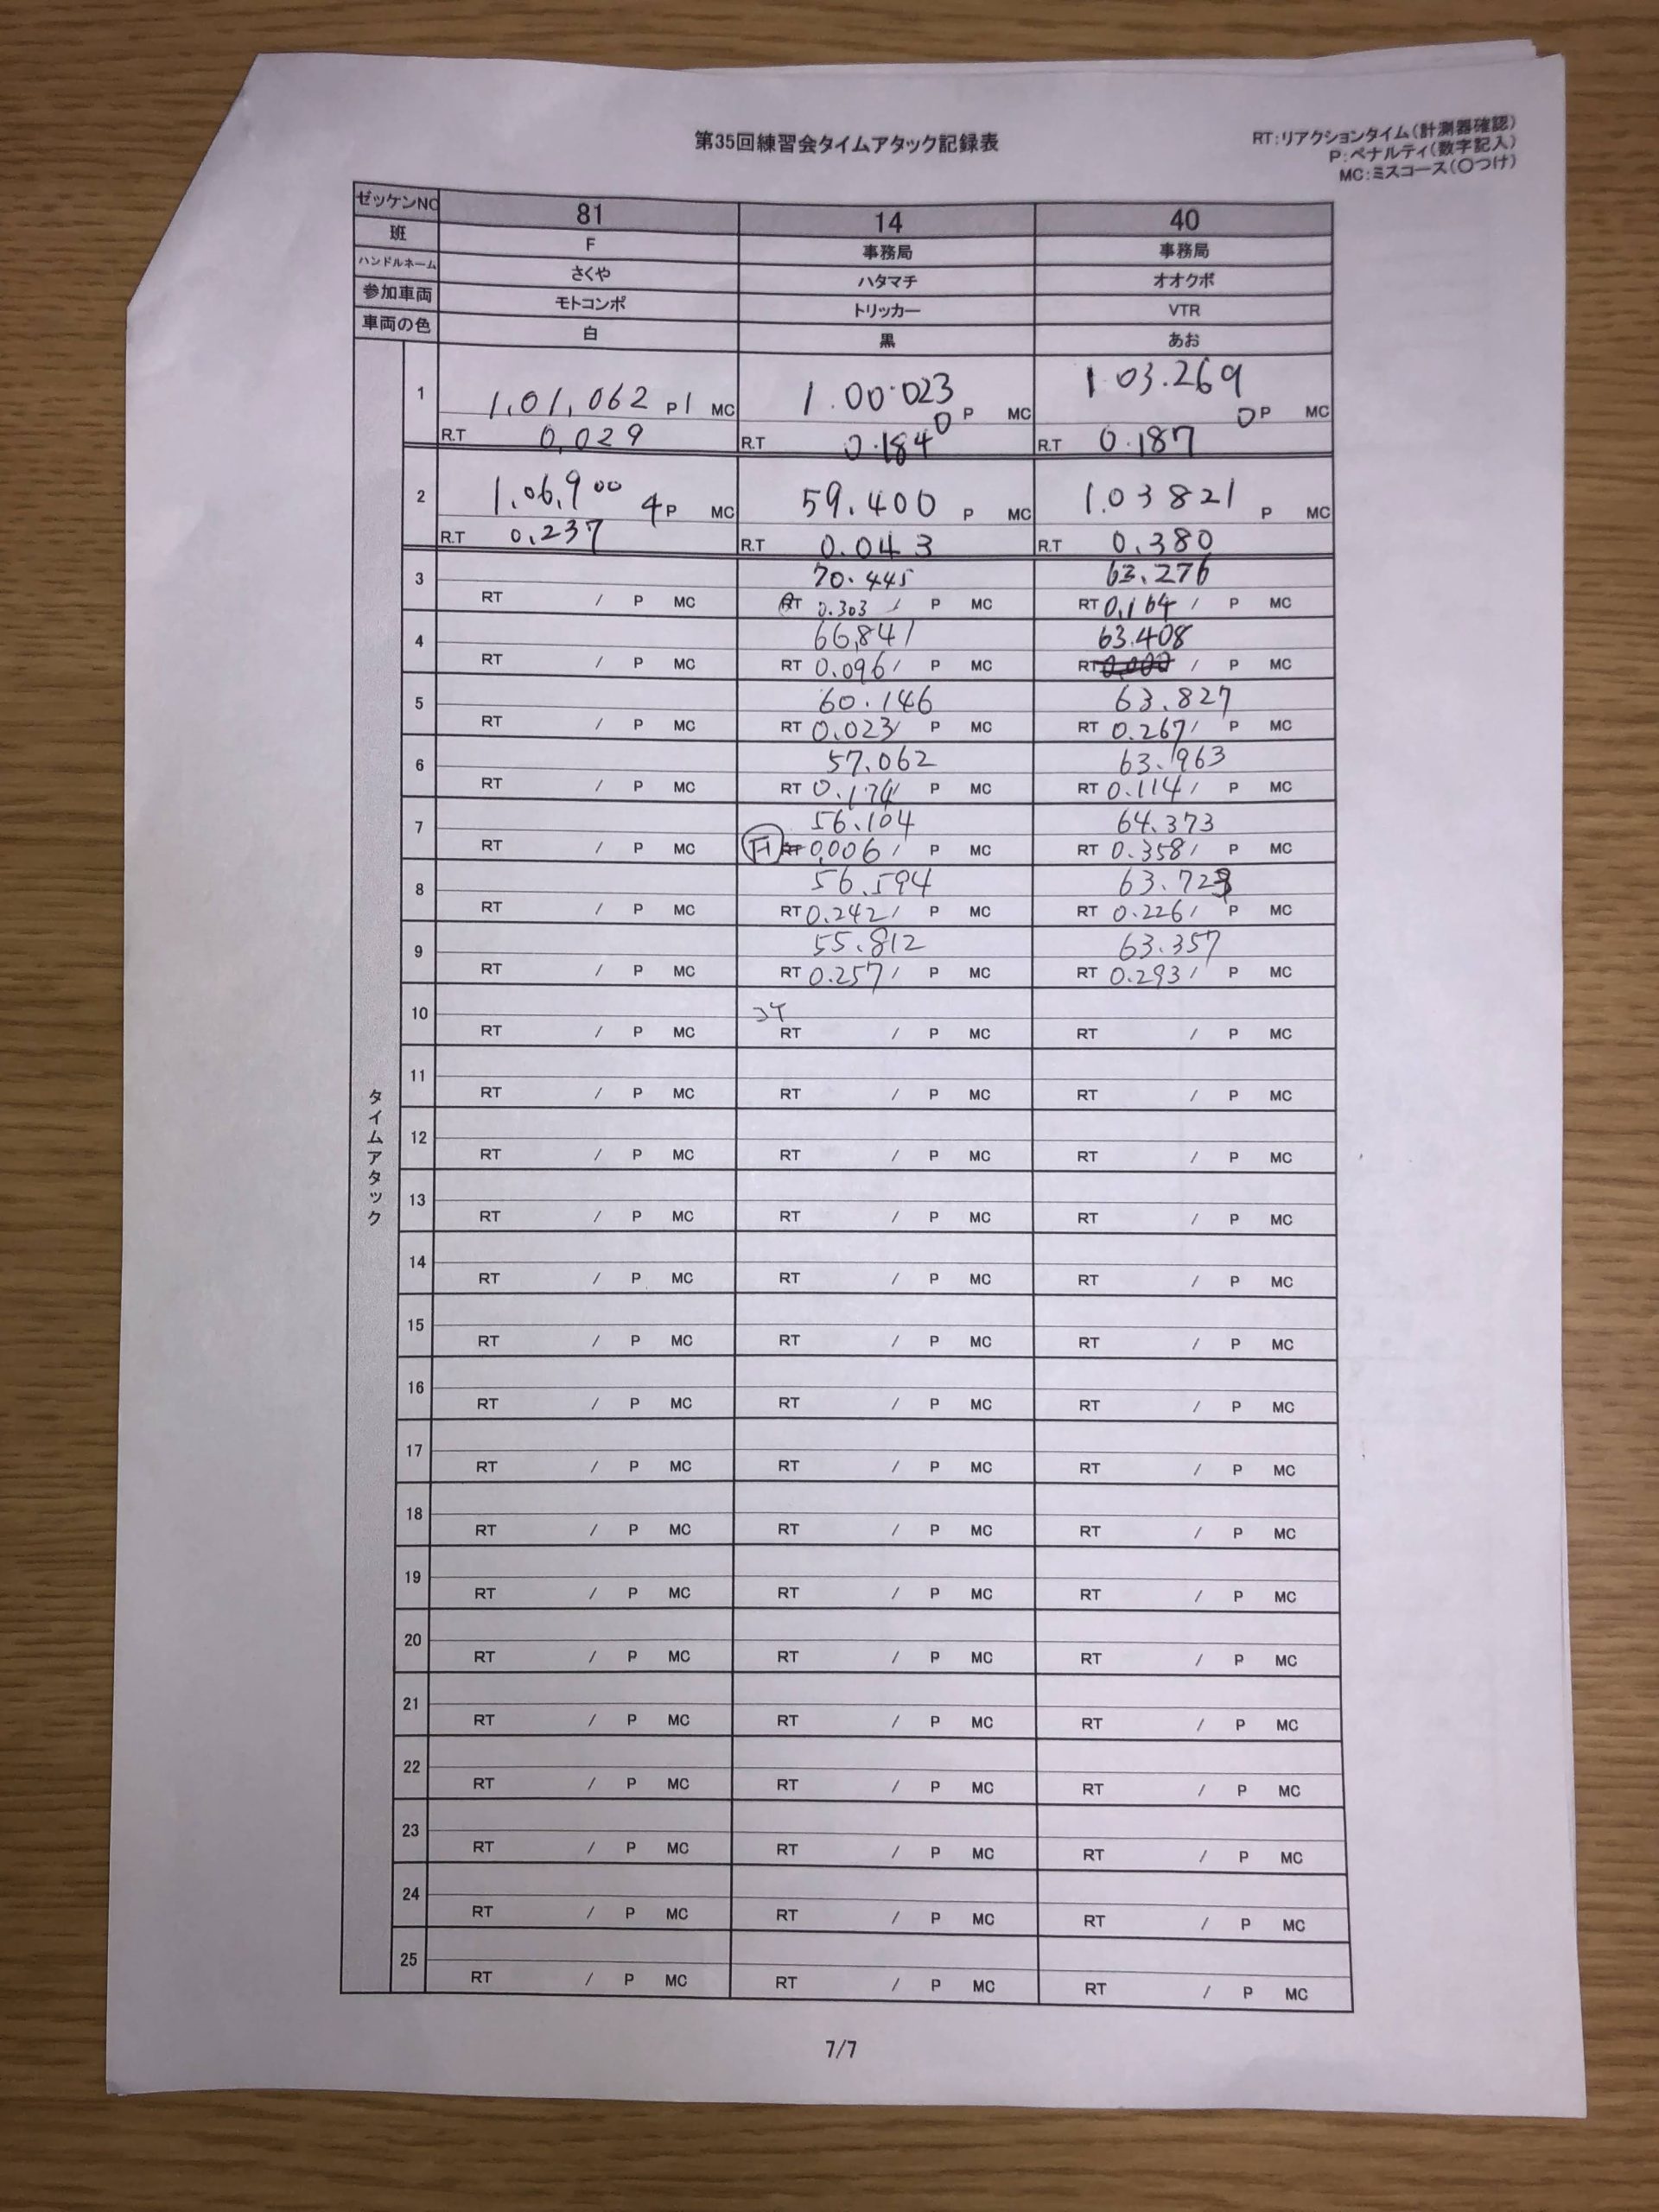 第35回練習会タイムアタック記録表
RT:リアクションタイム(計測器確認)
P:ペナルティ(数字記入)
MC:ミスコース(〇つけ)
ゼッケンNO 81 14 40
班 F 事務局 事務局
ハンドルネーム さくや ハタマチ オオクボ
参加車両 モトコンポ トリッカー VTR
車両の色 白 黒 あお
タイムアタック
1 1,01,062 P1 MC 1.00.023 0P MC 1 03.269 0P MC
R.T 0,029 R.T 0.184 R.T 0.187
2 1,06,900 4P MC 59.400 P MC 1.03 821 P MC
R.T 0,237 R.T 0.043 R.T 0.380
3 70.445 63.276
RT / P MC RT 0.303 / P MC RT 0,164 / P MC
4 66,841 63.408
RT / P MC RT 0.096 / P MC RT / P MC
5 60.146 63.827
RT / P MC RT 0.023 / P MC RT 0.267 / P MC
6 57.062 63.963
RT / P MC RT 0.174 / P MC RT 0.114 / P MC
7 56.104 64.373
RT / P MC 0,006 / P MC RT 0.358 / P MC
8 56.594 63.72
RT / P MC RT 0.242 / P MC RT 0.226 / P MC
9 55.812 63.357
RT / P MC RT 0.257 / P MC RT 0.293 / P MC
10
RT / P MC RT / P MC RT / P MC
11
RT / P MC RT / P MC RT / P MC
12
RT / P MC RT / P MC RT / P MC
13
RT / P MC RT / P MC RT / P MC
14
RT / P MC RT / P MC RT / P MC
15
RT / P MC RT / P MC RT / P MC
16
RT / P MC RT / P MC RT / P MC
17
RT / P MC RT / P MC RT / P MC
18
RT / P MC RT / P MC RT / P MC
19
RT / P MC RT / P MC RT / P MC
20
RT / P MC RT / P MC RT / P MC
21
RT / P MC RT / P MC RT / P MC
22
RT / P MC RT / P MC RT / P MC
23
RT / P MC RT / P MC RT / P MC
24
RT / P MC RT / P MC RT / P MC
25
RT / P MC RT / P MC RT / P MC
7/7